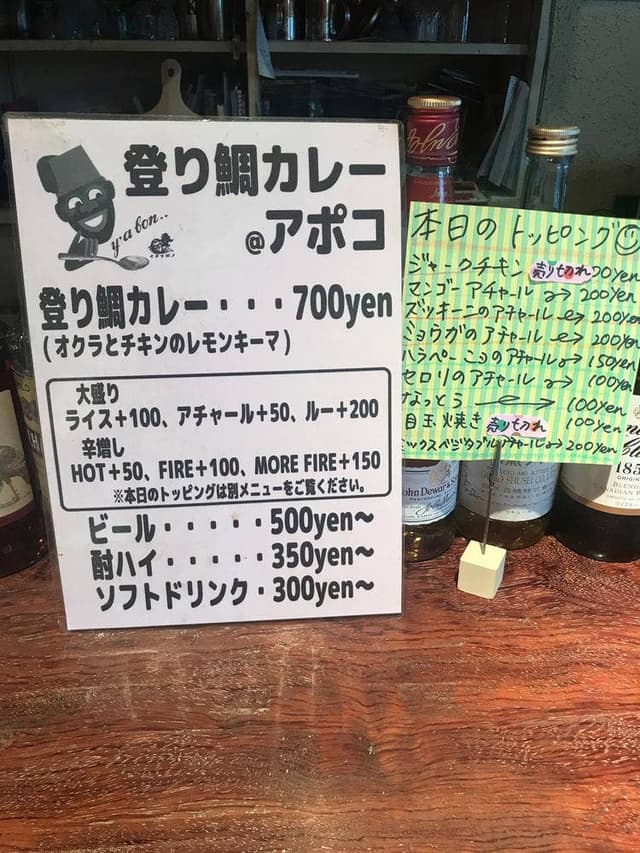 登り鯛カレー
@アポコ
y'a bon..
登り鯛カレー・・・700yen
(オクラとチキンのレモンキーマ)
大盛り
ライス+100、アチャール+50、ルー+200
辛増し
HOT+50、FIRE+100、MORE FIRE+150
※本日のトッピングは別メニューをご覧ください。
ビール・・・・・500yen～
酎ハイ・・・・・350yen～
ソフトドリンク・300yen～
本日のトッピング
ジャークチキン 売り切れ 00yen
マンゴーアチャール 200yen
ズッキーニのアチャール 200yen
ミョウガのアチャール 200yen
ハラペーニョのアチャール 150yen
セロリのアチャール 100yen
なっとう 100yen
目玉焼き 売り切れ 100yen
ミックスベジタブルアチャール 200yen
John Dewar & S
185